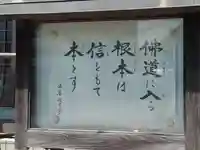 佛道に入る
根本は
信をもて
本とす